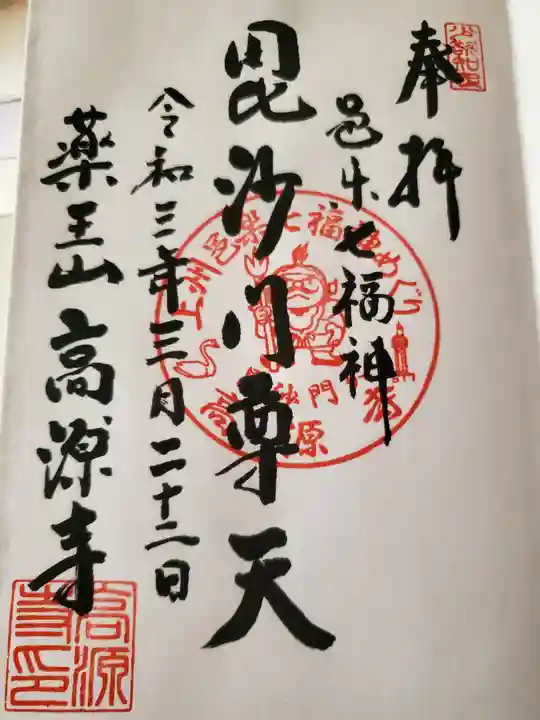 奉拝
邑楽七福神
毘沙門尊天
令和三年三月二十二日
薬王山高源寺
邑楽七福神めぐり
毘沙門
高源寺
高源
寺印